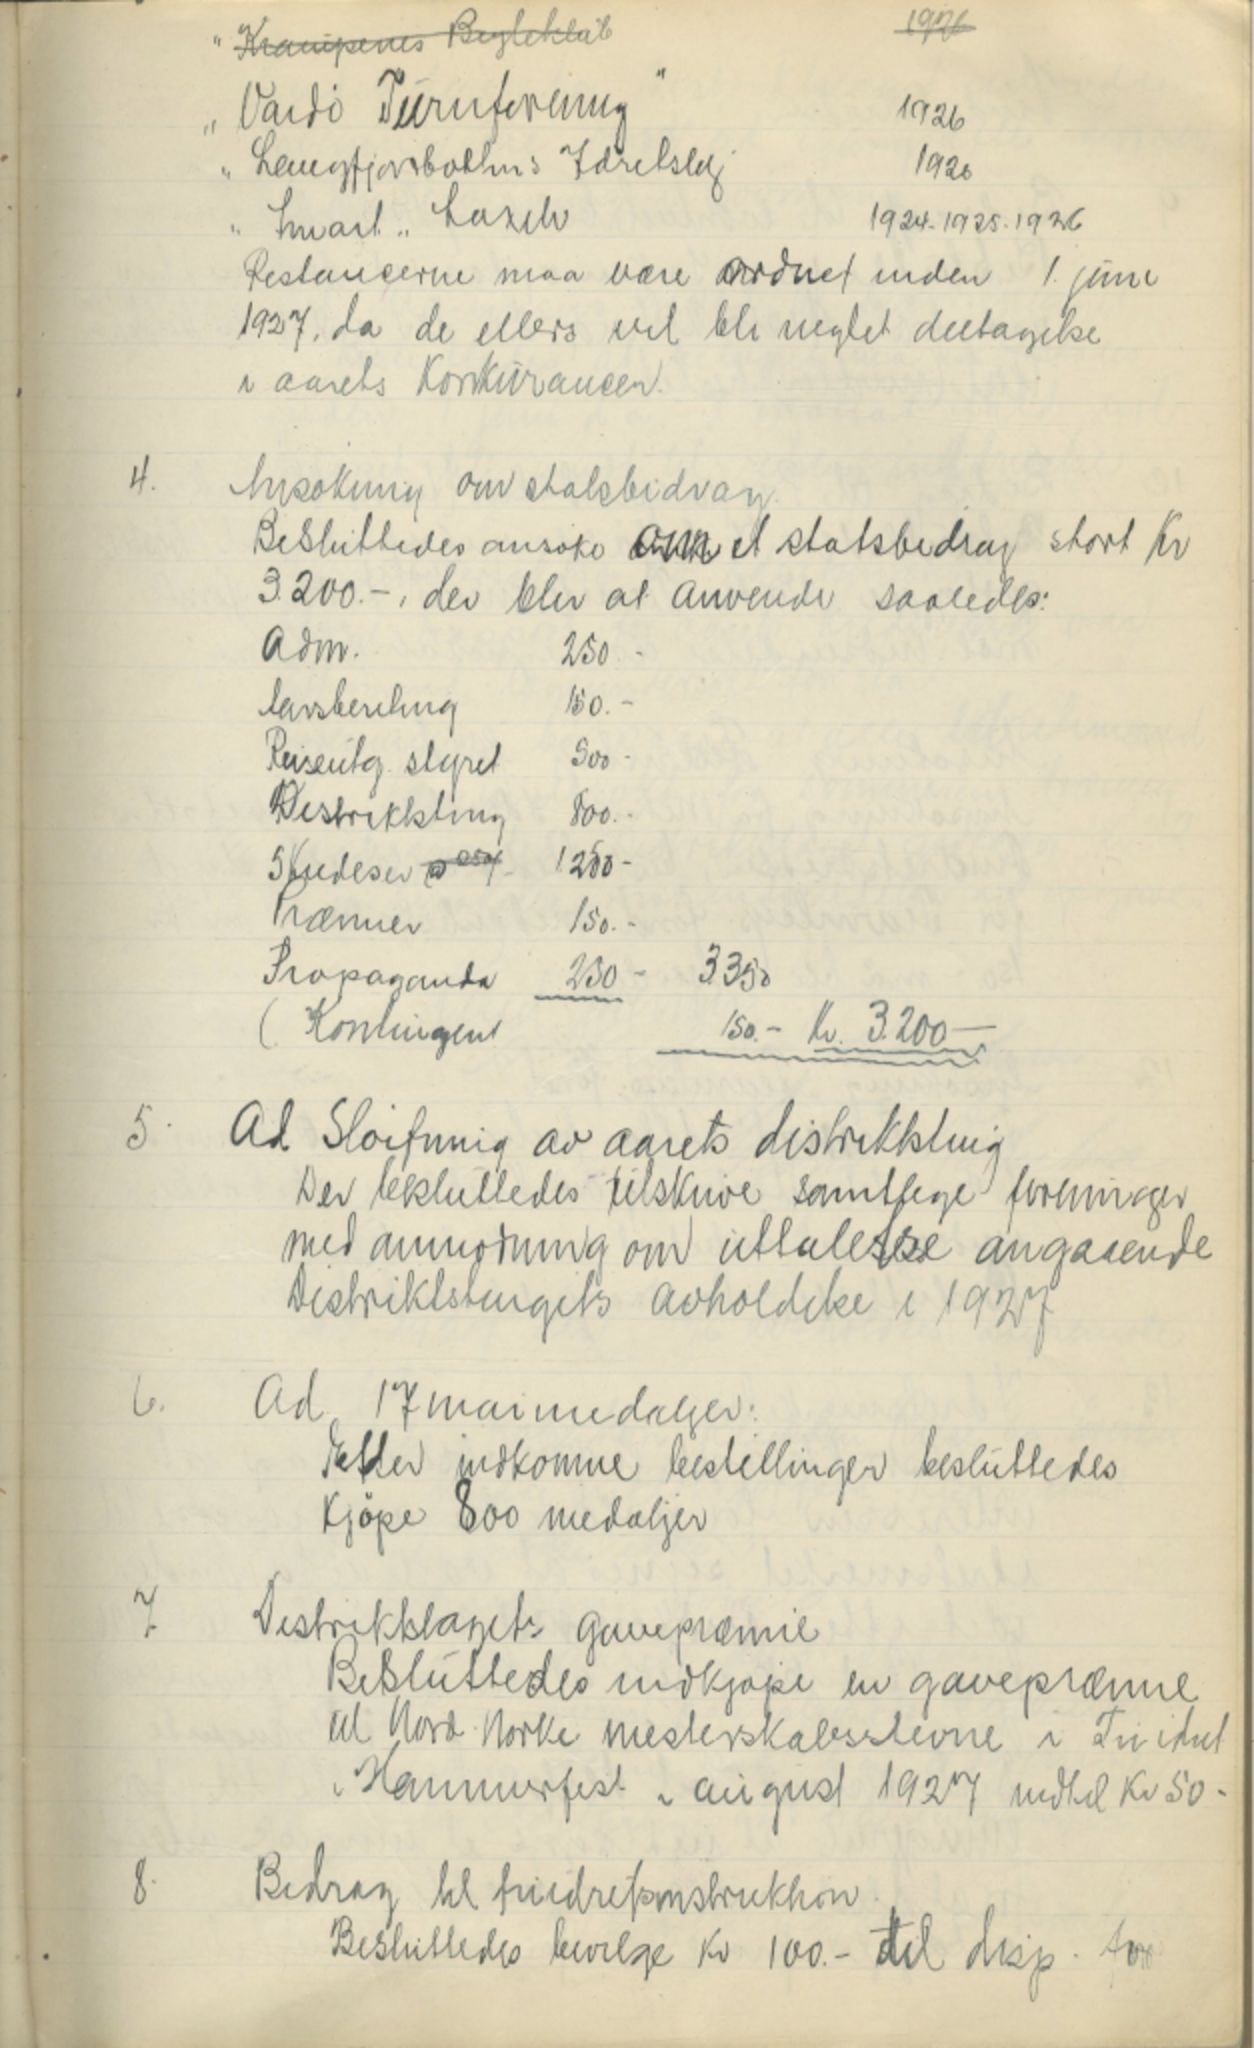 " Krampenes Bygleklub 1926
" Vardø Turnforening " 1926
" Langfjordbotten's Idrætslag 1926
" Snart " Laxelv 1924-1925-1926
Restancerne maa være ordnet inden 1. juni
1927, da de ellers vil bli negtet deltagelse
i aarets Konkurancer.
4. Ansøkning om statsbidrag.
Besluttedes ansøke om et statsbidrag stort Kr
3.200.-, der blir at anvende saaledes:
Adm. 250 -
Aarsberetning 150.-
Reiseutg. styret 500 -
Distriktsting 800.-
Studeser 1250 -
Præmier 150.-
Propaganda 250 - 3350
( Kontingent 150.- Kr. 3.200 -
5. Ad Sløifning av aarets distriktsting
Der besluttedes tilskrive samtlige foreninger
med anmodning om uttalelse angaaende
Distriktstingets avholdelse i 1927
6. Ad 17 mai medaljer:
Efter indkomne bestillinger besluttedes
kjøpe 800 medaljer
7. Distriktslagets gavepræmie
Besluttedes indkjøpe en gavepræmie
til Nord Norke mesterskabsstevne i Fri idræt
i Hammerfest i august 1927 indtil Kr 50 -
8. Bidrag til friidrætsinstruktion.
Besluttedes bevilge Kr 100.- til disp. for